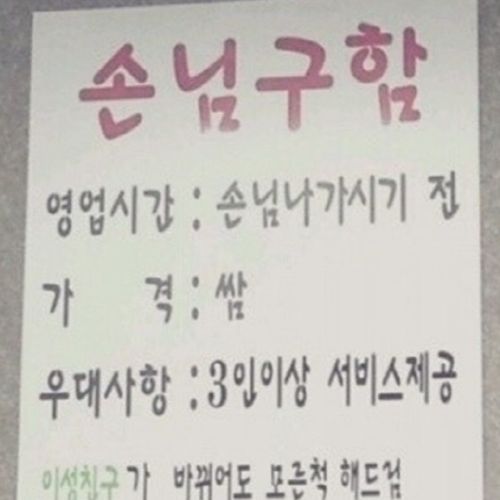 손님구함
영업시간 : 손님나가시기 전
가 격 : 쌈
우대사항 : 3인이상 서비스제공
이성친구가 바뀌어도 모른척 해드림